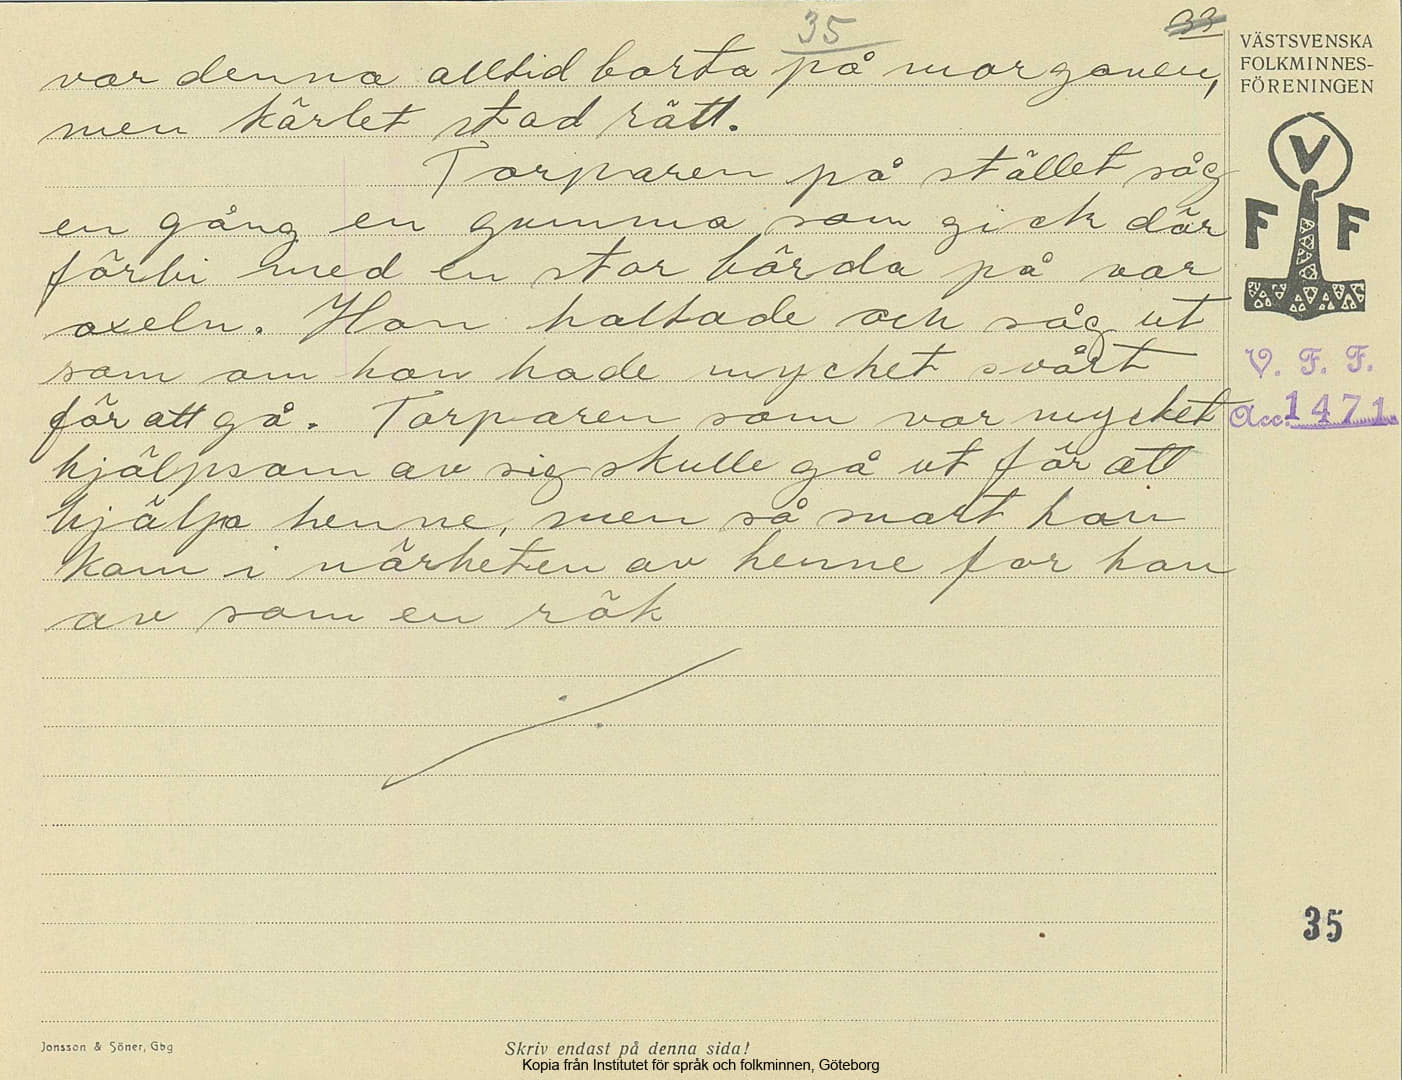 35
33
var denna alltid borta på morgonen,
men kärlet stod rätt.
Torparen på stället såg
en gång en gumma som gick där
förbi med en stor börda på var
axeln. Hon haltade och såg ut
som om hon hade mychet svårt
för att gå. Torparen som var mycket
hjälpsam av sig skulle gå ut för att
hjälpa henne, men så snart han
kom i närheten av henne for hon
av som en rök
VÄSTSVENSKA
FOLKMINNES-
FÖRENINGEN
V
F F
V. F. F.
Acc. 1471.
35
Jonsson & Söner, Gbg
Skriv endast på denna sida!
Kopia från Institutet för språk och folkminnen, Göteborg